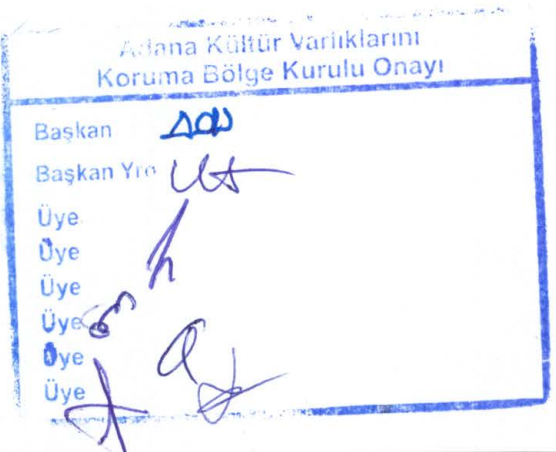 Adana Kültür Varlıklarını
Koruma Bölge Kurulu Onayı
Başkan
Başkan Yrd
Üye
Üye
Üye
Üye
Üye
Üye